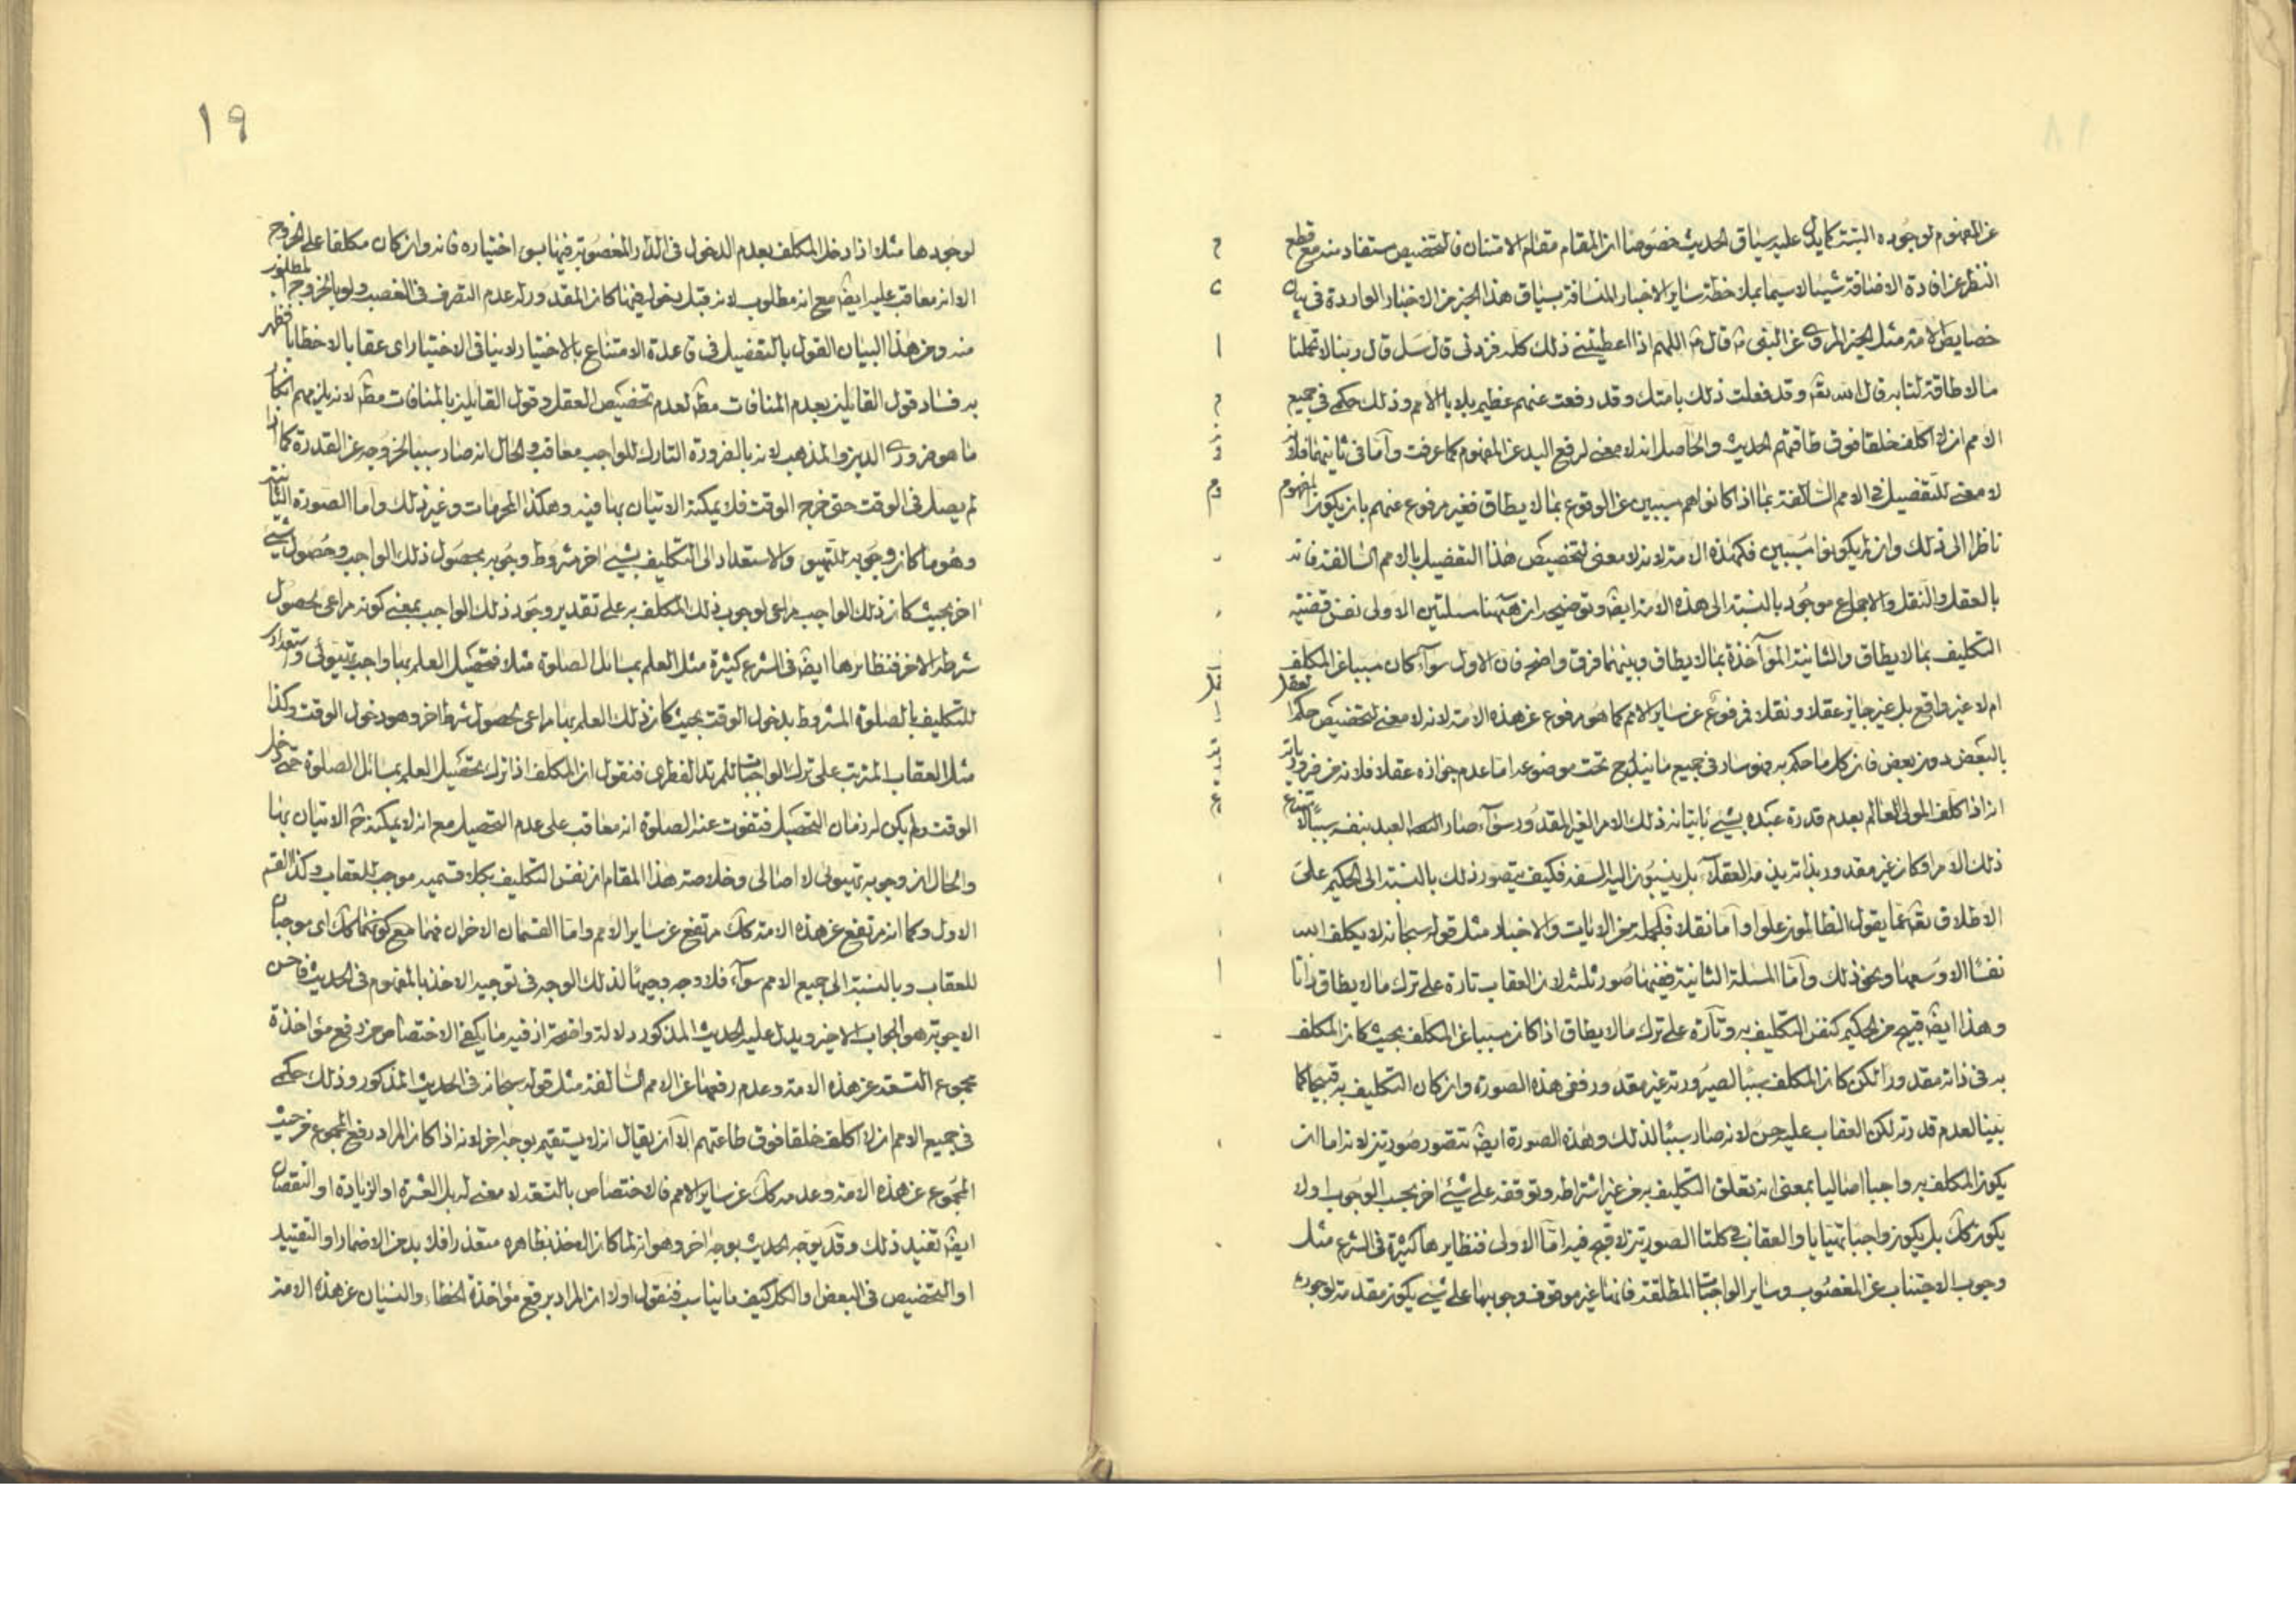 عن المفهوم لوجوده البتة كما يدل عليه سياق الحديث خصوصا ان المقام مقام الامتنان فالتخصيص مستفاد منه مع قطع
النظر عن افادة الاضافة شيئا لا سيما بملاحظة ساير الاخبار المنساقة بسياق هذا الخبر من الاخبار الواردة فى بيان
خصايص الامة مثل الخبر المروى عن النبى ص قال ص اللهم اذا اعطيتنى ذلك كله فزدنى قال سل قال ربنا لا تحملنا
ما لا طاقة لنا به قال الله تعـ وقد فعلت ذلك بامتك وقد رفعت عنهم عظيم بلايا الامم وذلك حكمى فى جميع
الامم ان لا اكلف خلقا فوق طاقتهم الحديث والحاصل انه لا معنى لرفع اليد عن المفهوم كما عرفت وأما فى ثانيهما فلأنه
لا معنى للتفصيل فى الامم السالفة بما اذا كانوا هم مسببين عن الوقوع بما لا يطاق فغير مرفوع عنهم بان يكون المفهوم
ناظرا الى ذلك وان لم يكونوا مسببين فكهذه الامة لانه لا معنى لتخصيص هذا التفضيل بالامم السالفة فانه
بالعقل والنقل والاجماع موجود بالنسبة الى هذه الامة ايضا وتوضيحه ان هيهنا مسئلتين الاولى نفس قضية
التكليف بما لا يطاق والثانية المؤاخذة بما لا يطاق وبينهما فرق واضح فان الاول سواء كان مسببا عن المكلف
ام لا غير واقع بل غير جايز عقلا ونقلا فمرفوع عن ساير الامم كما هو مرفوع عن هذه الامة لانه لا معنى لتخصيص حكم العقل
بالبعض دون بعض فان كل ما حكم به فهو سار فى جميع ما يندرج تحت موضوعه اما عدم جوازه عقلا فلانه من ضروريات
انه اذا كلف المولى العالم بعدم قدرة عبده بشىء باتيانه ذلك الامر الغير المقدور سواء صار العبد بنفسه سببا لامتناع
ذلك الامر او كان غير مقدور بذاته يذمه العقلاء بل ينسبون اليه السفه فكيف يتصور ذلك بالنسبة الى الحكيم على
الاطلاق تعـ عما يقول الظالمون علوا وأما نقلا فلجملة من الايات والاخبار مثل قوله سبحانه لا يكلف الله
نفسا الا وسعها ونحو ذلك وأما المسئلة الثانية ففيها صور ثلثة لان العقاب تارة على ترك ما لا يطاق ذاتا
وهذا ايضا قبيح من الحكيم كنفس التكليف به وتارة على ترك ما لا يطاق اذا كان مسببا عن المكلف بحيث كان المكلف
به فى ذاته مقدورا لكن كان المكلف سببا لصيرورته غير مقدور ففى هذه الصورة وان كان التكليف به قبيحا كما
بينا لعدم قدرته لكن العقاب عليه حسن لانه صار سببا لذلك وهذه الصورة ايضا تتصور صورتين لانه اما ان
يكون المكلف به واجبا اصاليا بمعنى انه تعلق التكليف به من غير اشتراطه وتوقفه على شىء اخر بحسب الوجوب او لا
يكون كك بل يكون واجبا تهيايا والعقاب فى كلتا الصورتين لا قبح فيه اما الاولى فنظايرها كثيرة فى الشرع مثل
وجوب الاجتناب عن المغصوب وساير الواجبات المطلقة فانها غير موقوف وجوبها على شىء يكون مقدمة لوجوده
١٩
لوجودها مثلا اذا دخل المكلف بعدم الدخول فى الدار المغصوبة فيها بسوء اختياره فانه وان كان مكلفا على الخروج
الا انه معاقب عليه ايضا مع انه مطلوب لانه قبل دخوله فيها كان المقدور له عدم التصرف فى الغصب ولو بالخروج المطلوب
منه ومن هذا البيان القول بالتفصيل فى قاعدة الامتناع بالاختيار لا ينافى الاختيار اى عقابا لا خطابا فظهر
به فساد قول القايلين بعدم المنافات مطـ لعدم تخصيص العقل وقول القايلين بالمنافات مطـ لانه يلزمهم انكار
ما هو ضرورى الدين والمذهب لانه بالضرورة التارك للواجب معاقب والحال انه صار سببا لخروجه عن القدرة كما اذا
لم يصل فى الوقت حتى خرج الوقت فلا يمكنه الاتيان بها فيه وهكذا المحرمات وغير ذلك واما الصورة الثانية
وهو ما كان وجوبه للتهيؤ والاستعداد الى التكليف بشىء اخر مشروط وجوبه بحصول ذلك الواجب وحصول شىء
اخر بحيث كان ذلك الواجب مراعى لوجوب ذلك المكلف به على تقدير وجود ذلك الواجب بمعنى كونه مراعى لحصول
شرطه الاخر فنظايرها ايضا فى الشرع كثيرة مثل العلم بمسائل الصلوة مثلا فتحصيل العلم بها واجب تهيوئى واستعدادى
للتكليف بالصلوة المشروط بدخول الوقت بحيث كان ذلك العلم بها مراعى لحصول شرط اخر وهو دخول الوقت وكذا
مثل العقاب المترتب على ترك الواجبات للمرتد الفطرى فنقول ان المكلف اذا ترك تحصيل العلم بمسائل الصلوة حتى دخل
الوقت ولم يكن له زمان التحصيل فتفوت عنه الصلوة انه معاقب على عدم التحصيل مع انه لا يمكنه ح الاتيان بها
والحال ان وجوبه تهيوئى لا اصالى وخلاصة هذا المقام ان نفس التكليف بكلا قسميه موجب للعقاب وكذا القسم
الاول وكما انه مرتفع عن هذه الامة كك مرتفع عن ساير الامم واما القسمان الاخران فهما مع كونهما كك اى موجبان
للعقاب وبالنسبة الى جميع الامم سواء فلا وجه وجيها لذلك الوجه فى توجيه الاخذ بالمفهوم فى الحديث فاحسن
الاجوبة هو الجواب الاخير ويدل عليه الحديث المذكور دلالة واضحة اذ فيه ما يكفى الاختصاص من رفع مؤاخذة
مجموع التسعة عن هذه الامة وعدم رفعها عن الامم السالفة مثل قوله سبحانه فى الحديث المذكور وذلك حكمى
فى جميع الامم ان لا اكلف خلقا فوق طاقتهم الا ان يقال انه لا يستقيم بوجه اخر لانه اذا كان المراد رفع المجموع من حيث
المجموع عن هذه الامة وعدمه كك عن ساير الامم فالاختصاص بالتسعة لا معنى له بل العشرة او الزيادة او النقصان
ايضا تفيد ذلك وقد يوجه الحديث بوجه اخر وهو انه لما كان الاخذ بظاهره متعذرا فلا بد من الاضمار او التقييد
او التخصيص فى البعض او الكل كيف ما يناسب فنقول اولا ان المراد برفع مؤاخذة الخطاء والنسيان عن هذه الامة